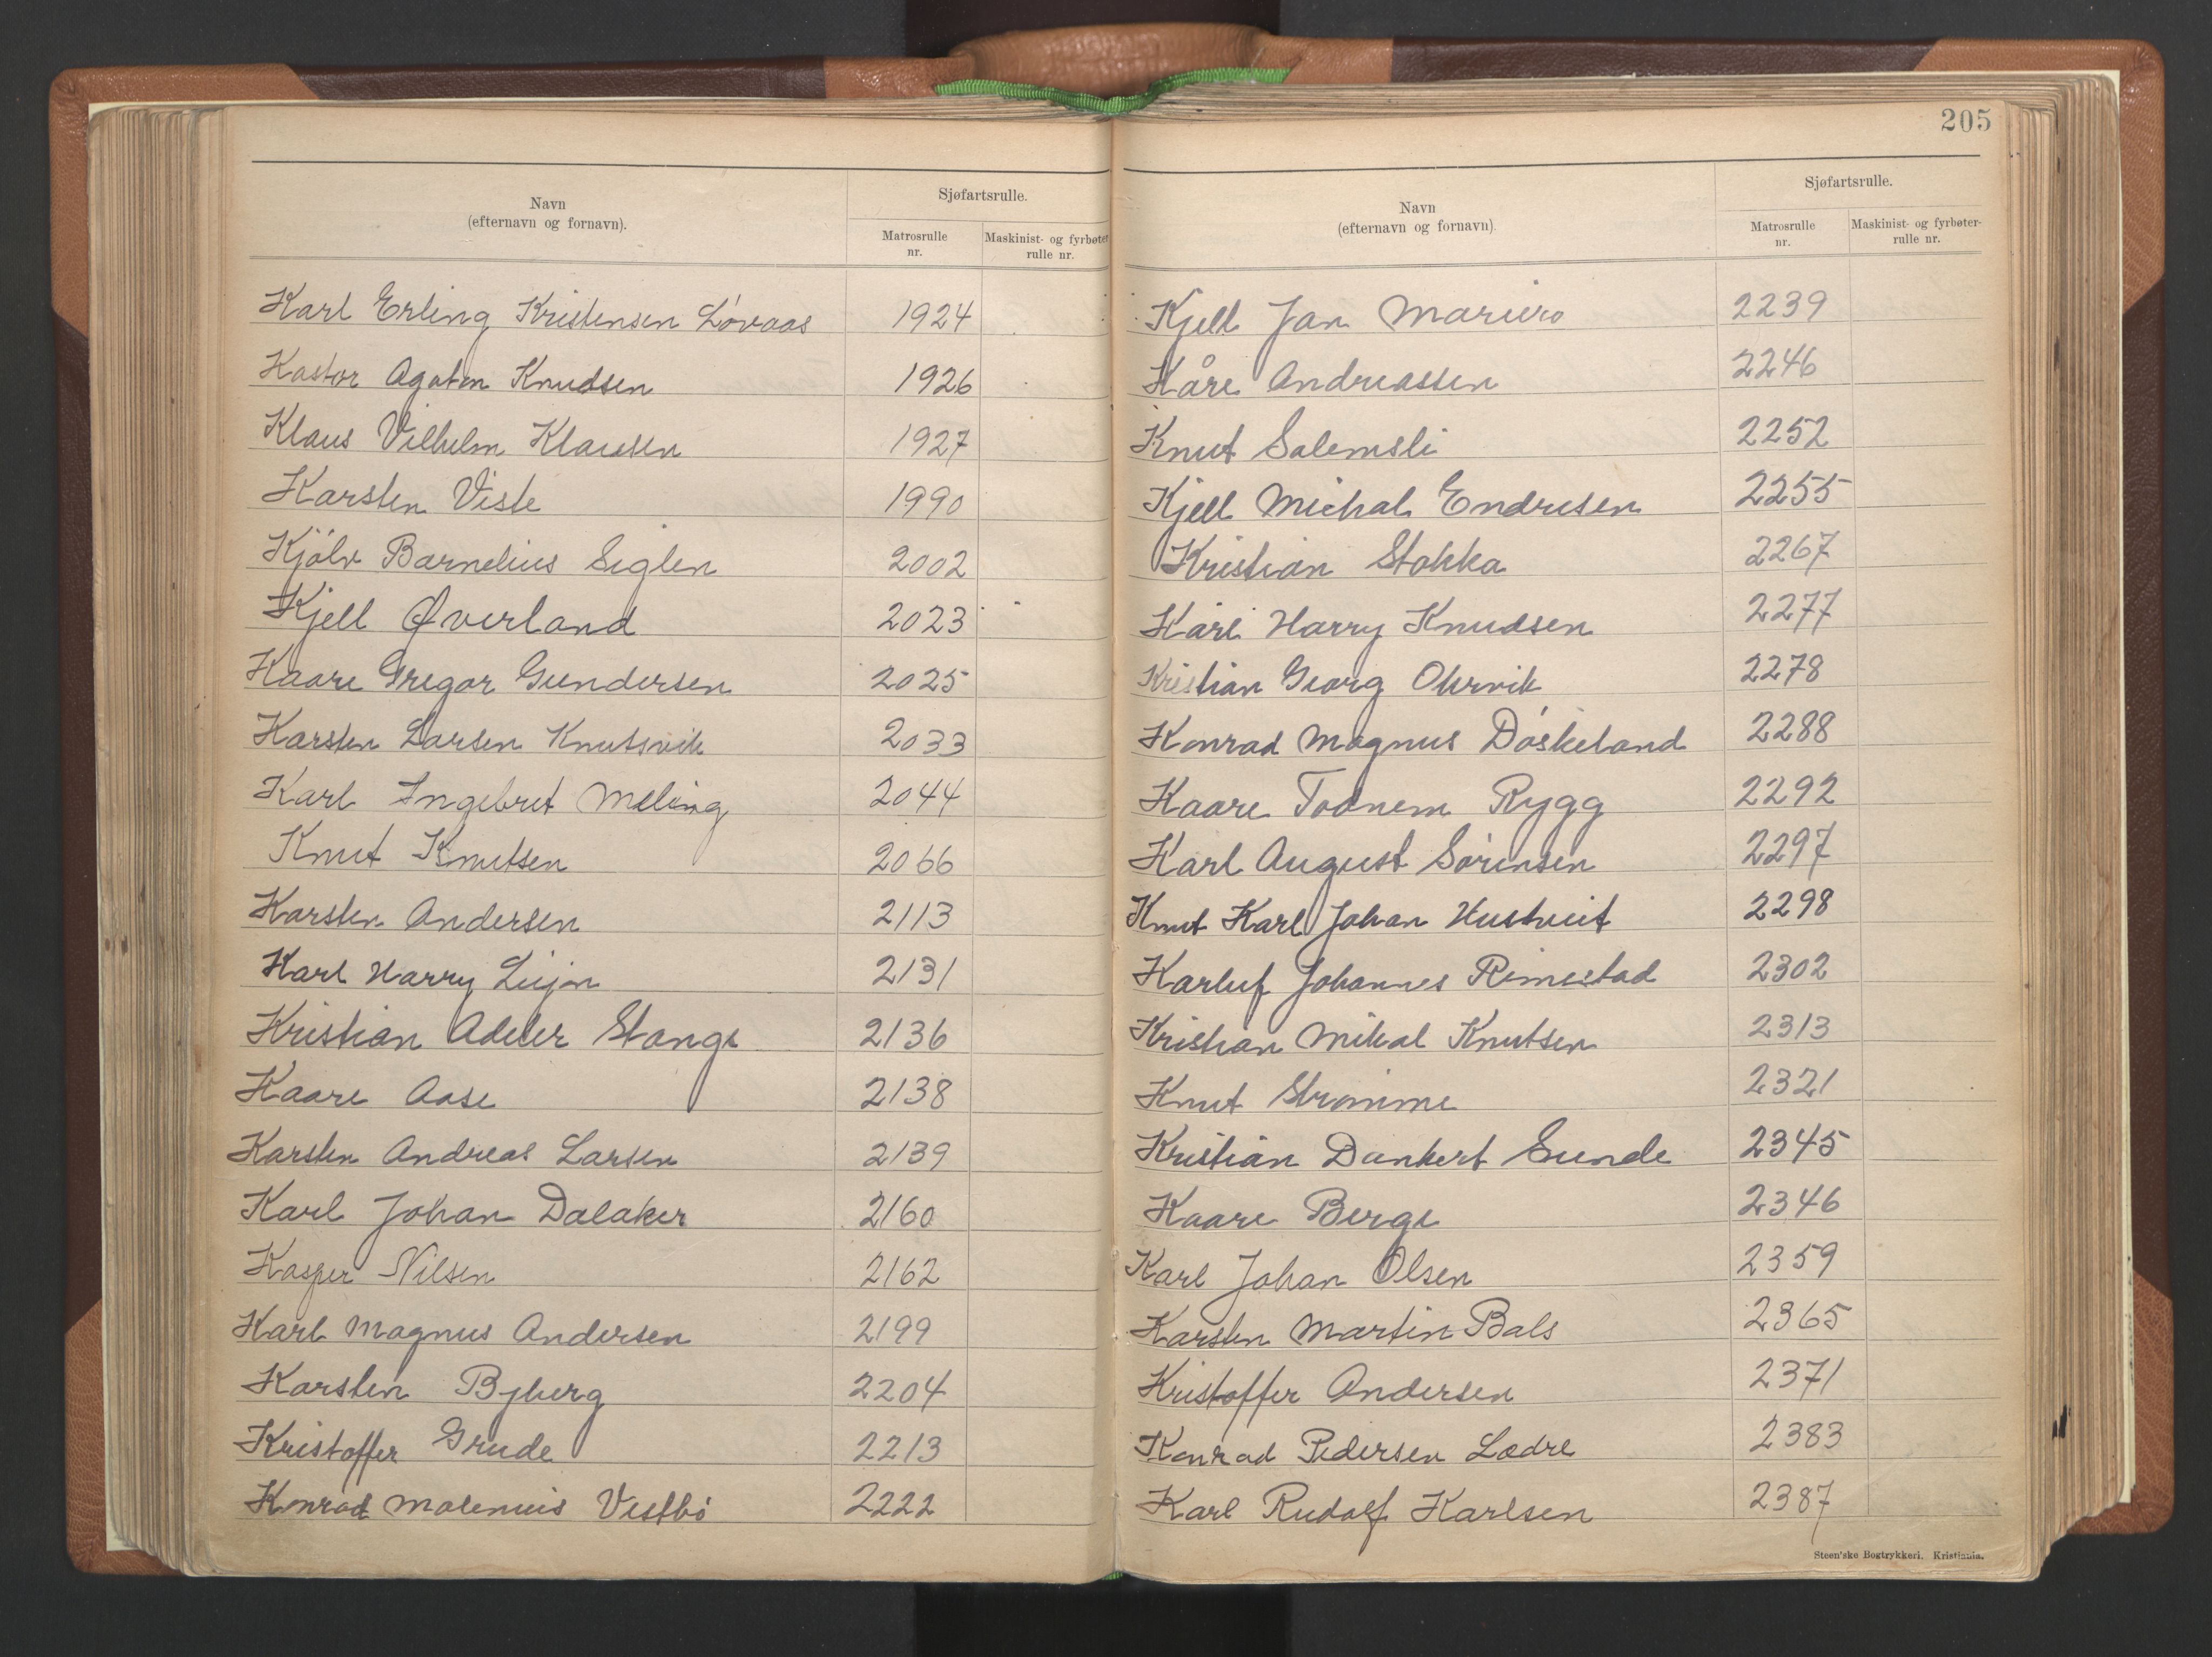 205
Navn
(efternavn og fornavn).
Sjøfartsrulle.
Matrosrulle
nr.
Maskinist- og fyrbøter
rulle nr.
Karl Erling Kristensen Lövaas 1924
Kastor Agaton Knudsen 1926
Klaus Vilhelm Klausen 1927
Karsten Viste 1990
Kjölv Barnelius Siglen 2002
Kjell Øverland 2023
Kaare Gregor Gundersen 2025
Karsten Larsen Knutsvik 2033
Karl Ingebret Meling 2044
Knut Knutsen 2066
Karsten Andersen 2113
Karl Harry 2131
Kristian Adeler Stange 2136
Kaare Aase 2138
Karsten Andreas Larsen 2139
Karl Johan Dalaker 2160
Kasper Nilsen 2162
Karl Magnus Andersen 2199
Karsten Byberg 2204
Kristoffer Grude 2213
Konrad Malenius Vestbö 2222
Navn
(efternavn og fornavn).
Sjøfartsrulle.
Matrosrulle
nr.
Maskinist- og fyrbøter-
rulle nr.
Kjell Jan Mariero 2239
Kåre Andreassen 2246
Knut Salemsli 2252
Kjell Michal Endresen 2255
Kristian Stokka 2267
Kåre Harry Knudsen 2277
Kristian Georg 2278
Konrad Magnus Döskeland 2288
Kaare Todnem Rygg 2292
Karl August Sörensen 2297
Knut Karl Johan Hustveit 2298
Karluf Johannes Rimestad 2302
Kristian Mikal Knutsen 2313
Knut Strømme 2321
Kristian Dankert Sunde 2345
Kaare Berge 2346
Karl Johan Olsen 2359
Karsten Martin Bals 2365
Kristoffer Andersen 2371
Konrad Pedersen Lædre 2383
Karl Rudolf Karlsen 2387
Steen'ske Bogtrykkeri. Kristiania.